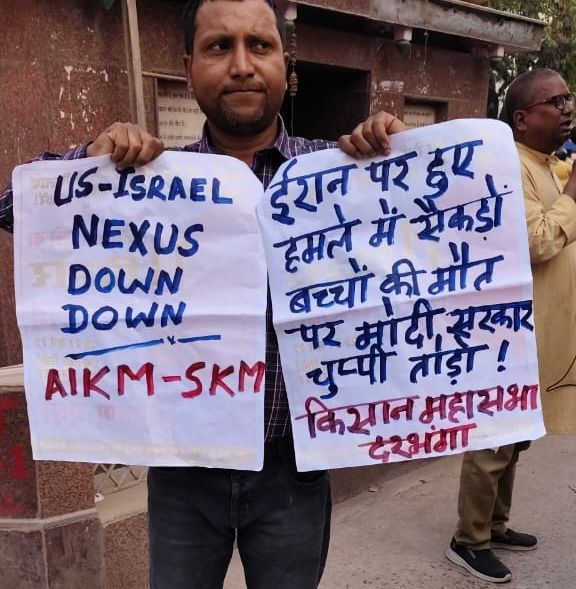 US-ISRAEL
NEXUS
DOWN
DOWN
AIKM-SKM
ईरान पर हुए
हमले में सैकड़ों
बच्चों की मौत
पर मोदी सरकार
चुप्पी तोड़ो !
किसान महासभा
दरभंगा